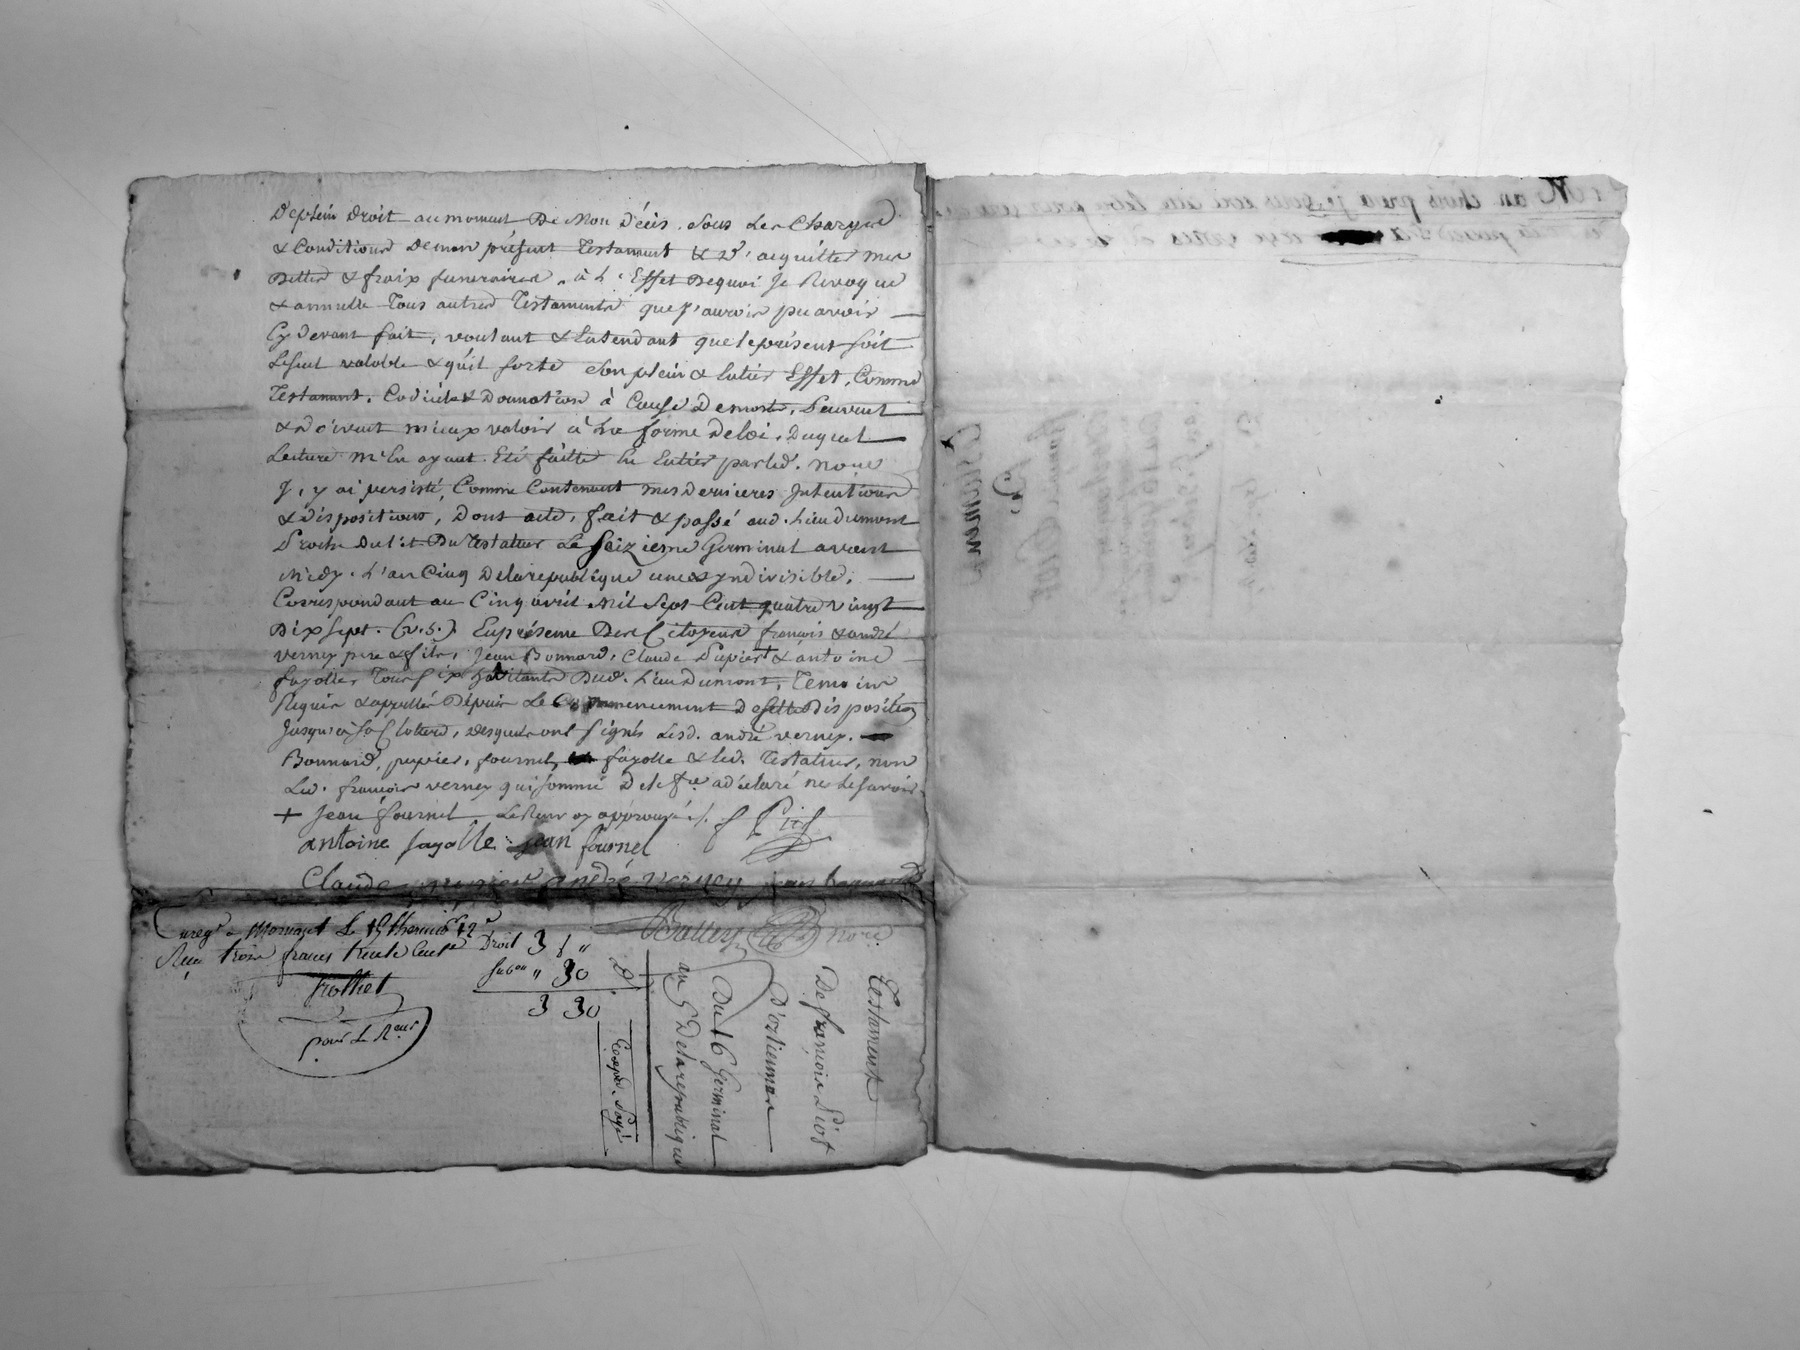 De plein Droit au moment De Mon Décès. Sous Les Charges
& Conditions de mon présent Testament & d'acquitter mes
Dettes & fraix funeraires. à L'Effet Dequoi Je Revoque
& annulle Tous autres Testaments que J'aurois pu avoir
Cy devant fait, voulant & Entendant que le présent soit
Le seul valable & qu'il sorte son plein & Entier Effet, Comme
Testament, Codicile & Donnation à Cause De mort, Peuvent
& Doivent mieux valoir à la forme De loi. Duquel
Lecture M'En ayant Eté faitte En Entier par led. no.re
J'y ai persisté, Comme Contenant mes dernieres Intentions
& dispositions, Dont acte, fait & passé aud. Lieu Dumont
Proche Du lit Du Testateur Le Seizieme Germinal avant
Midy. L'an Cinq De la republique une & Indivisible,
Correspondant au Cinq avril Mil Sept Cent quatre vingt
Dix Sept. (v. s.) En présence Des Citoyens françois & andré
verney pere & fils, Jean Bonnard, Claude Pupier & antoine
fayolle Tous Six habitants Dud. Lieu Dumont, Temoins
Requis & appellés Depuis Le Commencement De cette Disposition
Jusqu'à sa Cloture, desquels ont signés Lesd. andré verney.
Bonnard, pupier, fournel, fayolle & led. Testateur, non
Led. françois verney qui sommé De le f.re a déclaré ne le savoir
+ Jean fournel Le Renvoy approuvé
antoine fayolle jean fournel
Claude pupier andré verney jean bonnard
no.re
Enreg.é a Mornant Le 15 thermid.r
Reçu trois francs trente Cent.es Droit 3 f "
Sub.on " 30
3 30
pour le R.eur
Testament
De françois Piot
D'ortiennes
Du 16 Germinal
an 5 De la republique
Exped. Payé